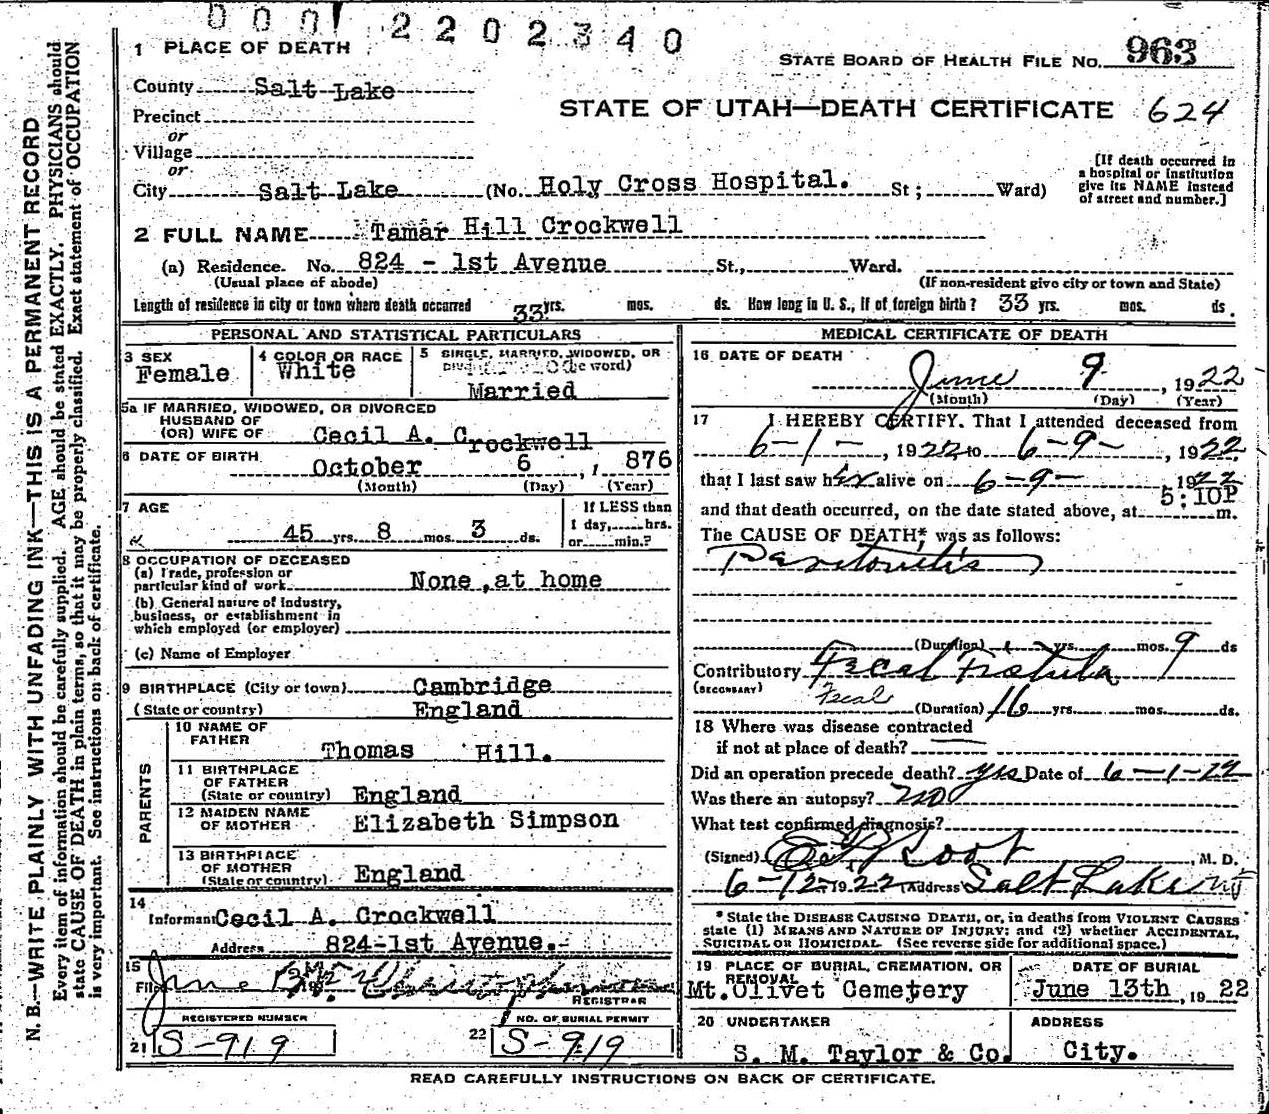 000 2202340
1 PLACE OF DEATH
STATE BOARD OF HEALTH FILE NO. 963
County Salt Lake
STATE OF UTAH—DEATH CERTIFICATE 624
Precinct
or
Village
or
[If death occurred in a hospital or institution give its NAME instead of street and number.]
City Salt Lake (No. Holy Cross Hospital. St; Ward)
2 FULL NAME Tamar Hill Crockwell
(a) Residence. No. 824 - 1st Avenue St., Ward.
(Usual place of abode) (If non-resident give city or town and State)
Length of residence in city or town where death occurred 33 yrs. mos. ds. How long in U. S., if of foreign birth? 33 yrs. mos. ds.
PERSONAL AND STATISTICAL PARTICULARS
3 SEX Female
4 COLOR OR RACE White
5 SINGLE, MARRIED, WIDOWED, OR
Married
5a IF MARRIED, WIDOWED, OR DIVORCED
HUSBAND OF
(OR) WIFE OF Cecil A. Crockwell
6 DATE OF BIRTH October 6, 876
(Month) (Day) (Year)
7 AGE
45 yrs. 8 mos. 3 ds.
If LESS than
1 day, hrs.
or min.?
8 OCCUPATION OF DECEASED
(a) Trade, profession or
particular kind of work None, at home
(b) General nature of industry,
business, or establishment in
which employed (or employer)
(c) Name of Employer
9 BIRTHPLACE (City or town) Cambridge
(State or country) England
PARENTS
10 NAME OF
FATHER Thomas Hill.
11 BIRTHPLACE
OF FATHER
(State or country) England
12 MAIDEN NAME
OF MOTHER Elizabeth Simpson
13 BIRTHPLACE
OF MOTHER
(State or country) England
14
Informant Cecil A. Crockwell
Address 824-1st Avenue.
15
Filed June
REGISTRAR
REGISTERED NUMBER
21 S-919
NO. OF BURIAL PERMIT
22 S-919
MEDICAL CERTIFICATE OF DEATH
16 DATE OF DEATH
June 9, 1922
(Month) (Day) (Year)
17 I HEREBY CERTIFY. That I attended deceased from
6-1-, 1922 to 6-9-, 1922
that I last saw her alive on 6-9- 1922
and that death occurred, on the date stated above, at 5:10P m.
The CAUSE OF DEATH* was as follows:
Peritonitis
(Duration) yrs. mos. 9 ds
Contributory Fecal Fistula
(SECONDARY) Fecal
(Duration) 16 yrs. mos. ds.
18 Where was disease contracted
if not at place of death?
Did an operation precede death? yes Date of 6-1-22
Was there an autopsy? no
What test confirmed diagnosis?
(Signed) Root, M. D.
6-12-1922 (Address) Salt Lake
* State the DISEASE CAUSING DEATH, or, in deaths from VIOLENT CAUSES
state (1) MEANS AND NATURE OF INJURY; and (2) whether ACCIDENTAL,
SUICIDAL OR HOMICIDAL. (See reverse side for additional space.)
19 PLACE OF BURIAL, CREMATION, OR
REMOVAL
Mt. Olivet Cemetery
DATE OF BURIAL
June 13th, 1922
20 UNDERTAKER
S. M. Taylor & Co.
ADDRESS
City.
READ CAREFULLY INSTRUCTIONS ON BACK OF CERTIFICATE.
N. B.—WRITE PLAINLY WITH UNFADING INK—THIS IS A PERMANENT RECORD
Every item of information should be carefully supplied. AGE should be stated EXACTLY. PHYSICIANS should
state CAUSE OF DEATH in plain terms, so that it may be properly classified. Exact statement of OCCUPATION
is very important. See instructions on back of certificate.